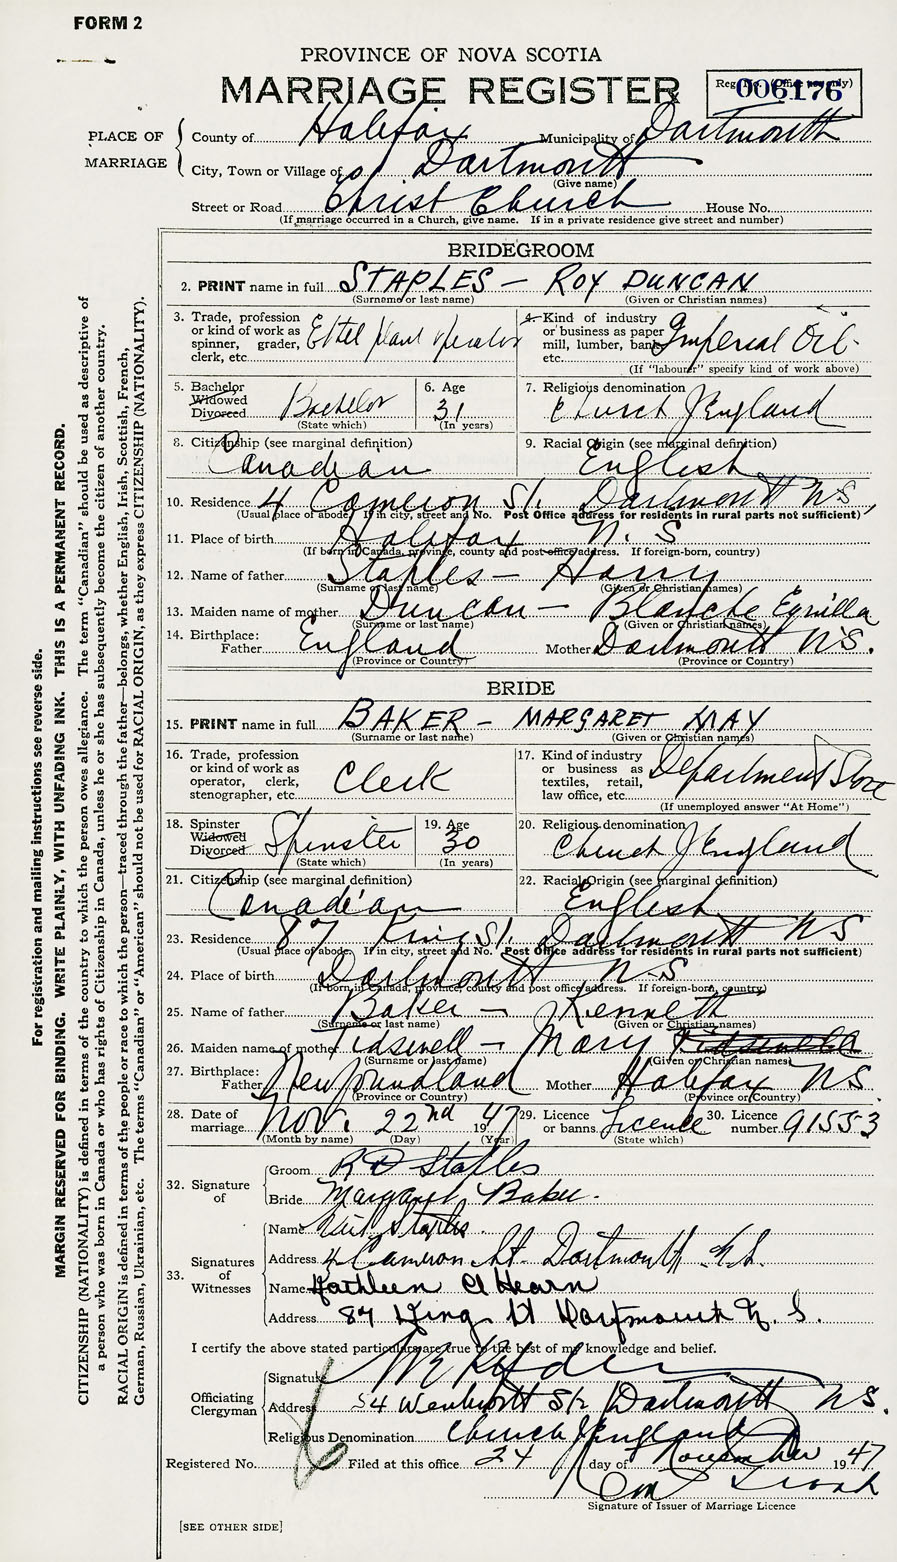 FORM 2
PROVINCE OF NOVA SCOTIA
MARRIAGE REGISTER
006176
PLACE OF MARRIAGE
County of Halifax Municipality of Dartmouth
City, Town or Village of Dartmouth
(Give name)
Street or Road Christ Church House No.
(If marriage occurred in a Church, give name. If in a private residence give street and number)
BRIDEGROOM
2. PRINT name in full STAPLES - ROY DUNCAN
(Surname or last name) (Given or Christian names)
3. Trade, profession or kind of work as spinner, grader, clerk, etc. Ethel plant operator
4. Kind of industry or business as paper mill, lumber, bank, etc. Imperial Oil.
(If "labourer" specify kind of work above)
5. Bachelor Widowed Divorced Bachelor
(State which)
6. Age 31
(In years)
7. Religious denomination Church of England
8. Citizenship (see marginal definition) Canadian
9. Racial Origin (see marginal definition) English
10. Residence 4 Cameron St. Dartmouth NS,
(Usual place of abode. If in city, street and No. Post Office address for residents in rural parts not sufficient)
11. Place of birth Halifax N.S
(If born in Canada, province, county and post office address. If foreign-born, country)
12. Name of father Staples - Harry
(Surname or last name) (Given or Christian names)
13. Maiden name of mother Duncan - Blanche
(Surname or last name) (Given or Christian names)
14. Birthplace:
Father England Mother Dartmouth N.S.
(Province or Country) (Province or Country)
BRIDE
15. PRINT name in full BAKER - MARGARET MAY
(Surname or last name) (Given or Christian names)
16. Trade, profession or kind of work as operator, clerk, stenographer, etc. Clerk
17. Kind of industry or business as textiles, retail, law office, etc. Department Store
(If unemployed answer "At Home")
18. Spinster Widowed Divorced Spinster
(State which)
19. Age 30
(In years)
20. Religious denomination Church of England
21. Citizenship (see marginal definition) Canadian
22. Racial Origin (see marginal definition) English
23. Residence 87 King St. Dartmouth NS
(Usual place of abode. If in city, street and No. Post Office address for residents in rural parts not sufficient)
24. Place of birth Dartmouth N-S
(If born in Canada, province, county and post office address. If foreign-born, country)
25. Name of father Baker - Kenneth
(Surname or last name) (Given or Christian names)
26. Maiden name of mother Tidswell - Mary
(Surname or last name) (Given or Christian names)
27. Birthplace:
Father Newfoundland Mother Halifax NS
(Province or Country) (Province or Country)
28. Date of marriage Nov. 22nd 1947
(Month by name) (Day) (Year)
29. Licence or banns Licence
(State which)
30. Licence number 91553
32. Signature of
Groom R D Staples
Bride Margaret Baker.
33. Signatures of Witnesses
Name Staples
Address 4 Cameron St. Dartmouth N.S.
Name Kathleen A Hearn
Address 87 King St Dartmouth N. S.
I certify the above stated particulars are true to the best of my knowledge and belief.
Officiating Clergyman
Signature
Address 54 Wentworth St. Dartmouth N.S.
Religious Denomination Church of England
Registered No. Filed at this office 24 day of November 1947
Signature of Issuer of Marriage Licence
[SEE OTHER SIDE]
For registration and mailing instructions see reverse side.
MARGIN RESERVED FOR BINDING. WRITE PLAINLY, WITH UNFADING INK. THIS IS A PERMANENT RECORD.
CITIZENSHIP (NATIONALITY) is defined in terms of the country to which the person owes allegiance. The term "Canadian" should be used as descriptive of
a person who was born in Canada or who has rights of Citizenship in Canada, unless he or she has subsequently become the citizen of another country.
RACIAL ORIGIN is defined in terms of the people or race to which the person—traced through the father—belongs, whether English, Irish, Scottish, French,
German, Russian, Ukrainian, etc. The terms "Canadian" or "American" should not be used for RACIAL ORIGIN, as they express CITIZENSHIP (NATIONALITY).